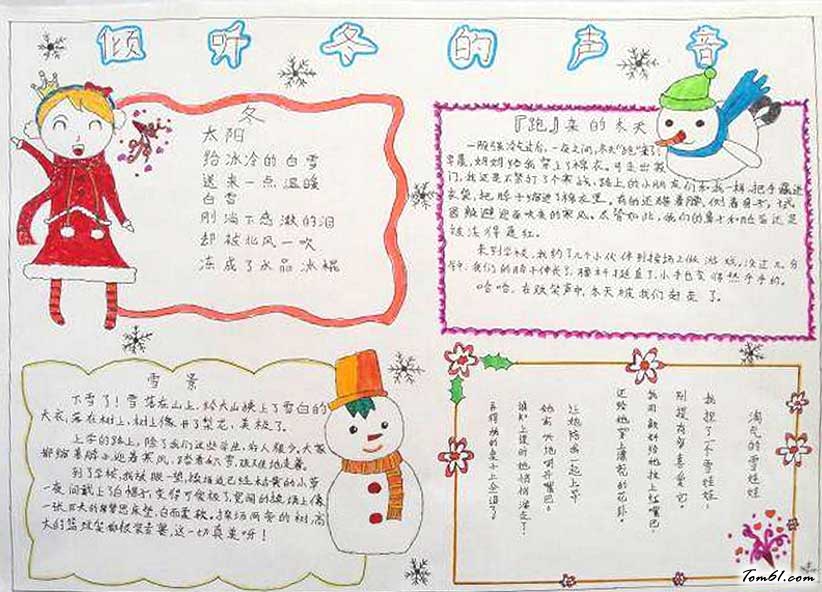 倾听冬的声音
冬
太阳
给冰冷的白雪
送来一点温暖
白雪
刚淌下感激的泪
却被北风一吹
冻成了水晶冰棍
『跑』来的冬天
一股强冷气过后，一夜之间，冬天“跑”来了，
早晨，妈妈给我穿上了棉衣。可走出家
门，我还是不禁打了个寒战，路上的小朋友们和我一样，把手藏进
衣袋，把脖子缩进了棉衣里。有的还眯着眼，侧着身子，试
图躲避迎面吹来的寒风。尽管如此，我们的鼻子和脸蛋还是
被冻得通红。
来到学校，我约了几个小伙伴到操场上做游戏，没过几分
钟，我们的脖子伸长了，腰杆挺直了，小手也变得热乎乎的。
哈哈，在欢笑声中，冬天被我们赶走了。
雪景
下雪了！雪落在山上，给大山换上了雪白的
大衣，落在树上，树上像开了梨花，美极了。
上学的路上，除了我们这些学生，行人很少。大家
都缩着脖子，迎着寒风，踏着大雪，艰难地走着。
到了学校，我放眼一望，操场边已经枯黄的小草
一夜间戴上了白帽子，变得可爱极了，宽阔的操场上像
一张巨大的床垫，白而柔软。操场两旁的树，高
大的，这一切真美呀！
淘气的雪娃娃
我捏了一个雪娃娃，
别提有多喜爱它。
我用颜料给她按上红嘴巴，
还给她穿上漂亮的花卦。
让她陪我一起上学
她高兴地咧开嘴巴。
谁知上课时她悄悄溜走了，
弄得我的桌子上全湿了。
Tom61.com